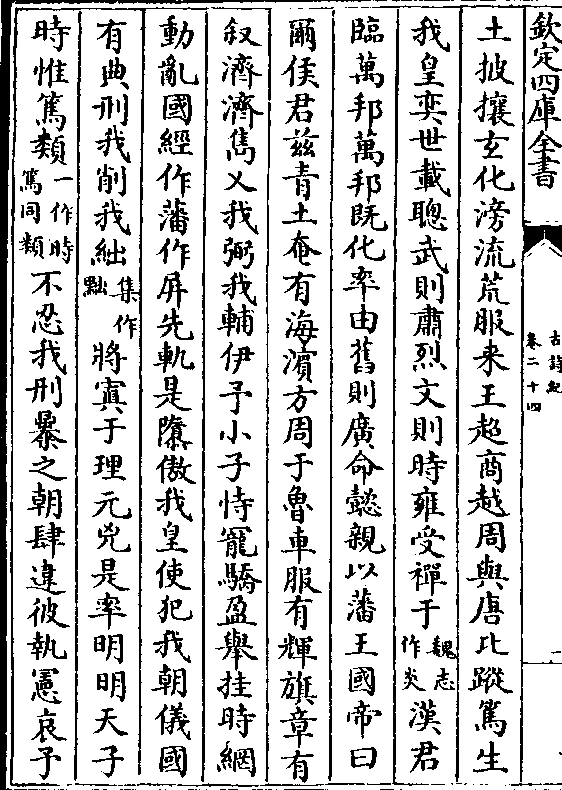 欽定四庫全書
古詩紀
卷二十四
土披攘玄化滂流荒服来王超商越周與唐比蹤篤生
我皇奕世載聰武則肅烈文則時雍受禪于魏志作炎漢君
臨萬邦萬邦既化率由舊則廣命懿親以藩王國帝曰
爾侯君兹青土奄有海濱方周于魯車服有輝旗章有
叙濟濟雋乂我弼我輔伊予小子恃寵驕盈舉挂時網
動亂國經作藩作屏先軌是隳傲我皇使犯我朝儀國
有典刑我削我絀集作黜將寘于理元兇是率明明天子
時惟篤類一作時篤同類不忍我刑暴之朝肆違彼執憲哀予